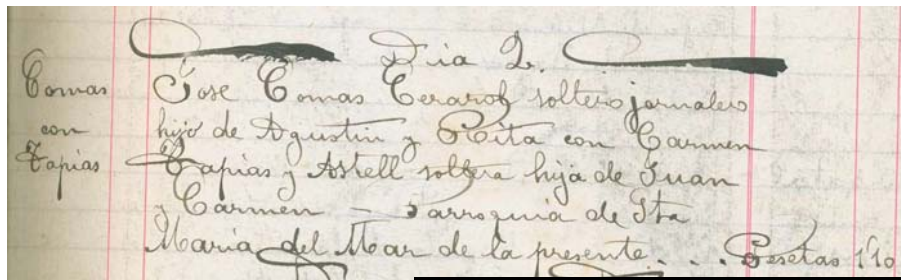 Dia 2.
Comas con Tapias
Jose Comas Cerarols soltero jornalero
hijo de Agustin y Rita con Carmen
Tapias y Astell soltera hija de Juan
y Carmen — Parroquia de Sta
Maria del Mar de la presente . . . Pesetas 1'10